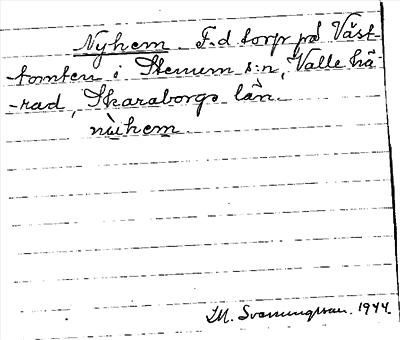 Nyhem. F.d torp på Väst-
tomten i Stenum s:n, Valle hä-
-rad, Skaraborgs län.
nùhem
M. Svanungsson. 1944.